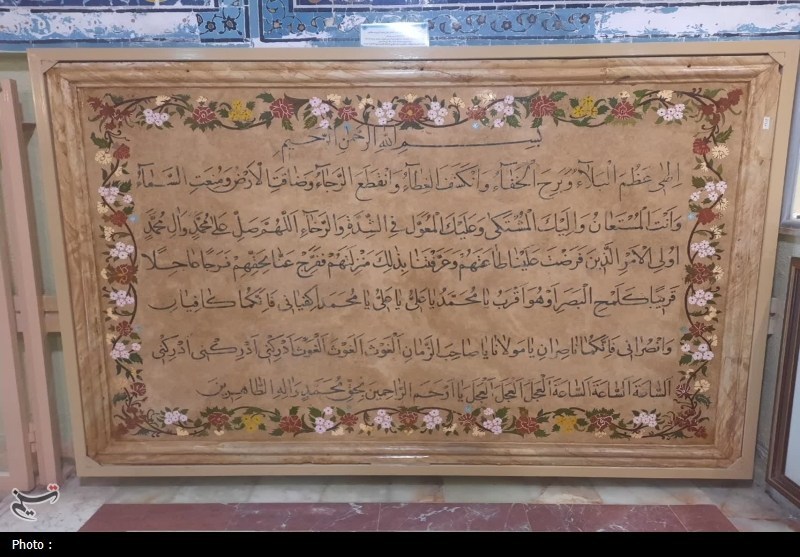 بسم الله الرحمن الرحیم
اِلٰهی عَظُمَ الْبَلَاءُ وَبَرِحَ الْخَفَاءُ وَانْكَشَفَ الْغِطَاءُ وَانْقَطَعَ الرَّجَاءُ وَضَاقَتِ الْاَرْضُ وَمُنِعَتِ السَّمَاءُ
وَاَنْتَ الْمُسْتَعَانُ وَاِلَيْكَ الْمُشْتَكىٰ وَعَلَيْكَ الْمُعَوَّلُ فِى الشِّدَّةِ وَالرَّخَاءِ اَللّٰهُمَّ صَلِّ عَلىٰ مُحَمَّدٍ وَالِ مُحَمَّدٍ
اُولِى الْاَمْرِ الَّذِينَ فَرَضْتَ عَلَيْنَا طَاعَتَهُمْ وَعَرَّفْتَنَا بِذٰلِكَ مَنْزِلَتَهُمْ فَفَرِّجْ عَنَّا بِحَقِّهِمْ فَرَجًا عَاجِلًا
قَرِيبًا كَلَمْحِ الْبَصَرِ اَوْ هُوَ اَقْرَبُ يَا مُحَمَّدُ يَا عَلِىُّ يَا عَلِىُّ يَا مُحَمَّدُ اِكْفِيَانِى فَاِنَّكُمَا كَافِيَانِ
وَانْصُرَانِى فَاِنَّكُمَا نَاصِرَانِ يَا مَوْلَانَا يَا صَاحِبَ الزَّمَانِ اَلْغَوْثَ اَلْغَوْثَ اَلْغَوْثَ اَدْرِكْنِى اَدْرِكْنِى اَدْرِكْنِى
اَلسَّاعَةَ اَلسَّاعَةَ اَلسَّاعَةَ اَلْعَجَلَ اَلْعَجَلَ اَلْعَجَلَ يَا اَرْحَمَ الرَّاحِمِينَ بِحَقِّ مُحَمَّدٍ وَالِهِ الطَّاهِرِينَ
تسنیم
Photo :